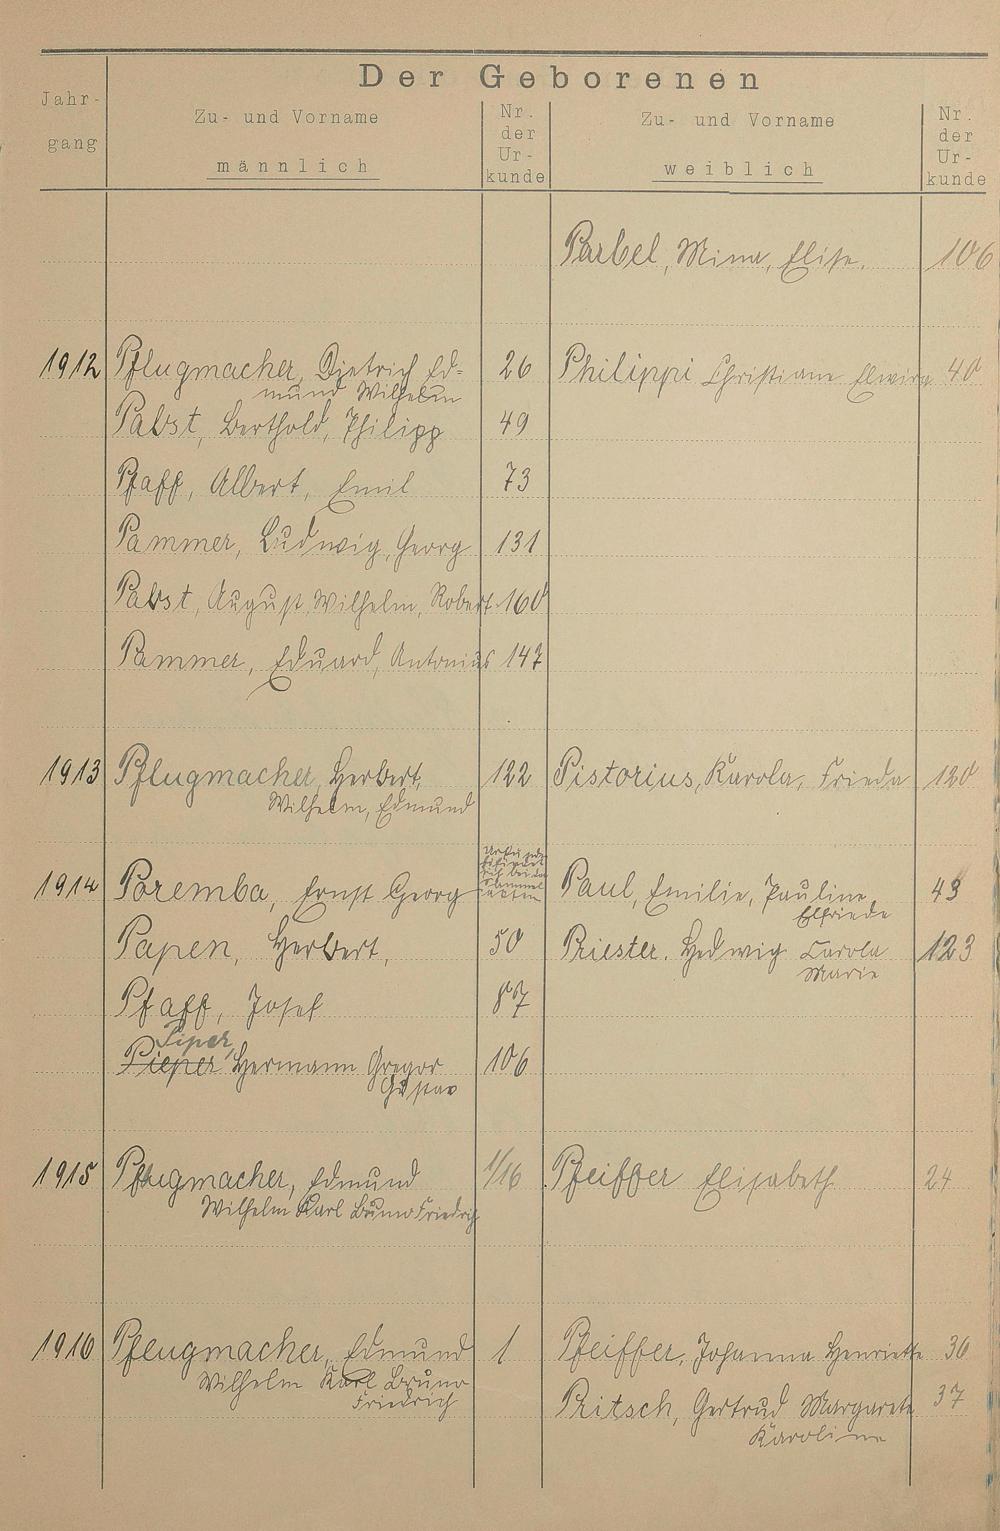 Der Geborenen
Jahr-
gang
Zu- und Vorname
männlich
Nr.
der
Ur-
kunde
Zu- und Vorname
weiblich
Nr.
der
Ur-
kunde
Parbel, Minna, Elise. 106
1912 Pflugmacher, Dietrich Ed= 26 Philippi Christiane Elwira 40
mund Wilhelm
Pabst, Berthold, Philipp 49
Pfaff, Albert, Emil 73
Pammer, Ludwig, Georg 131
Pabst, August, Wilhelm, Robert 160
Pammer, Eduard, Antonius 147
1913 Pflugmacher, Herbert, 122 Pistorius, Karola, Frieda 120
Wilhelm, Edmund
1914 Poremba, Ernst Georg Urkunde befindet sich bei den Sammelakten Paul, Emilie, Pauline 43
Elfriede
Papen, Herbert, 50 Priester, Hedwig Carola 123
Marie
Pfaff, Josef 87
Piper,
Pieper Hermann Gregor 106
Gustav
1915 Pflugmacher, Edmund 1/16 Pfeiffer Elisabeth 24
Wilhelm Karl Bruno Friedrich
1916 Pflugmacher, Edmund 1 Pfeiffer, Johanna Henriette 36
Wilhelm Karl Bruno
Friedrich
Pritsch, Gertrud Margarete 37
Karoline